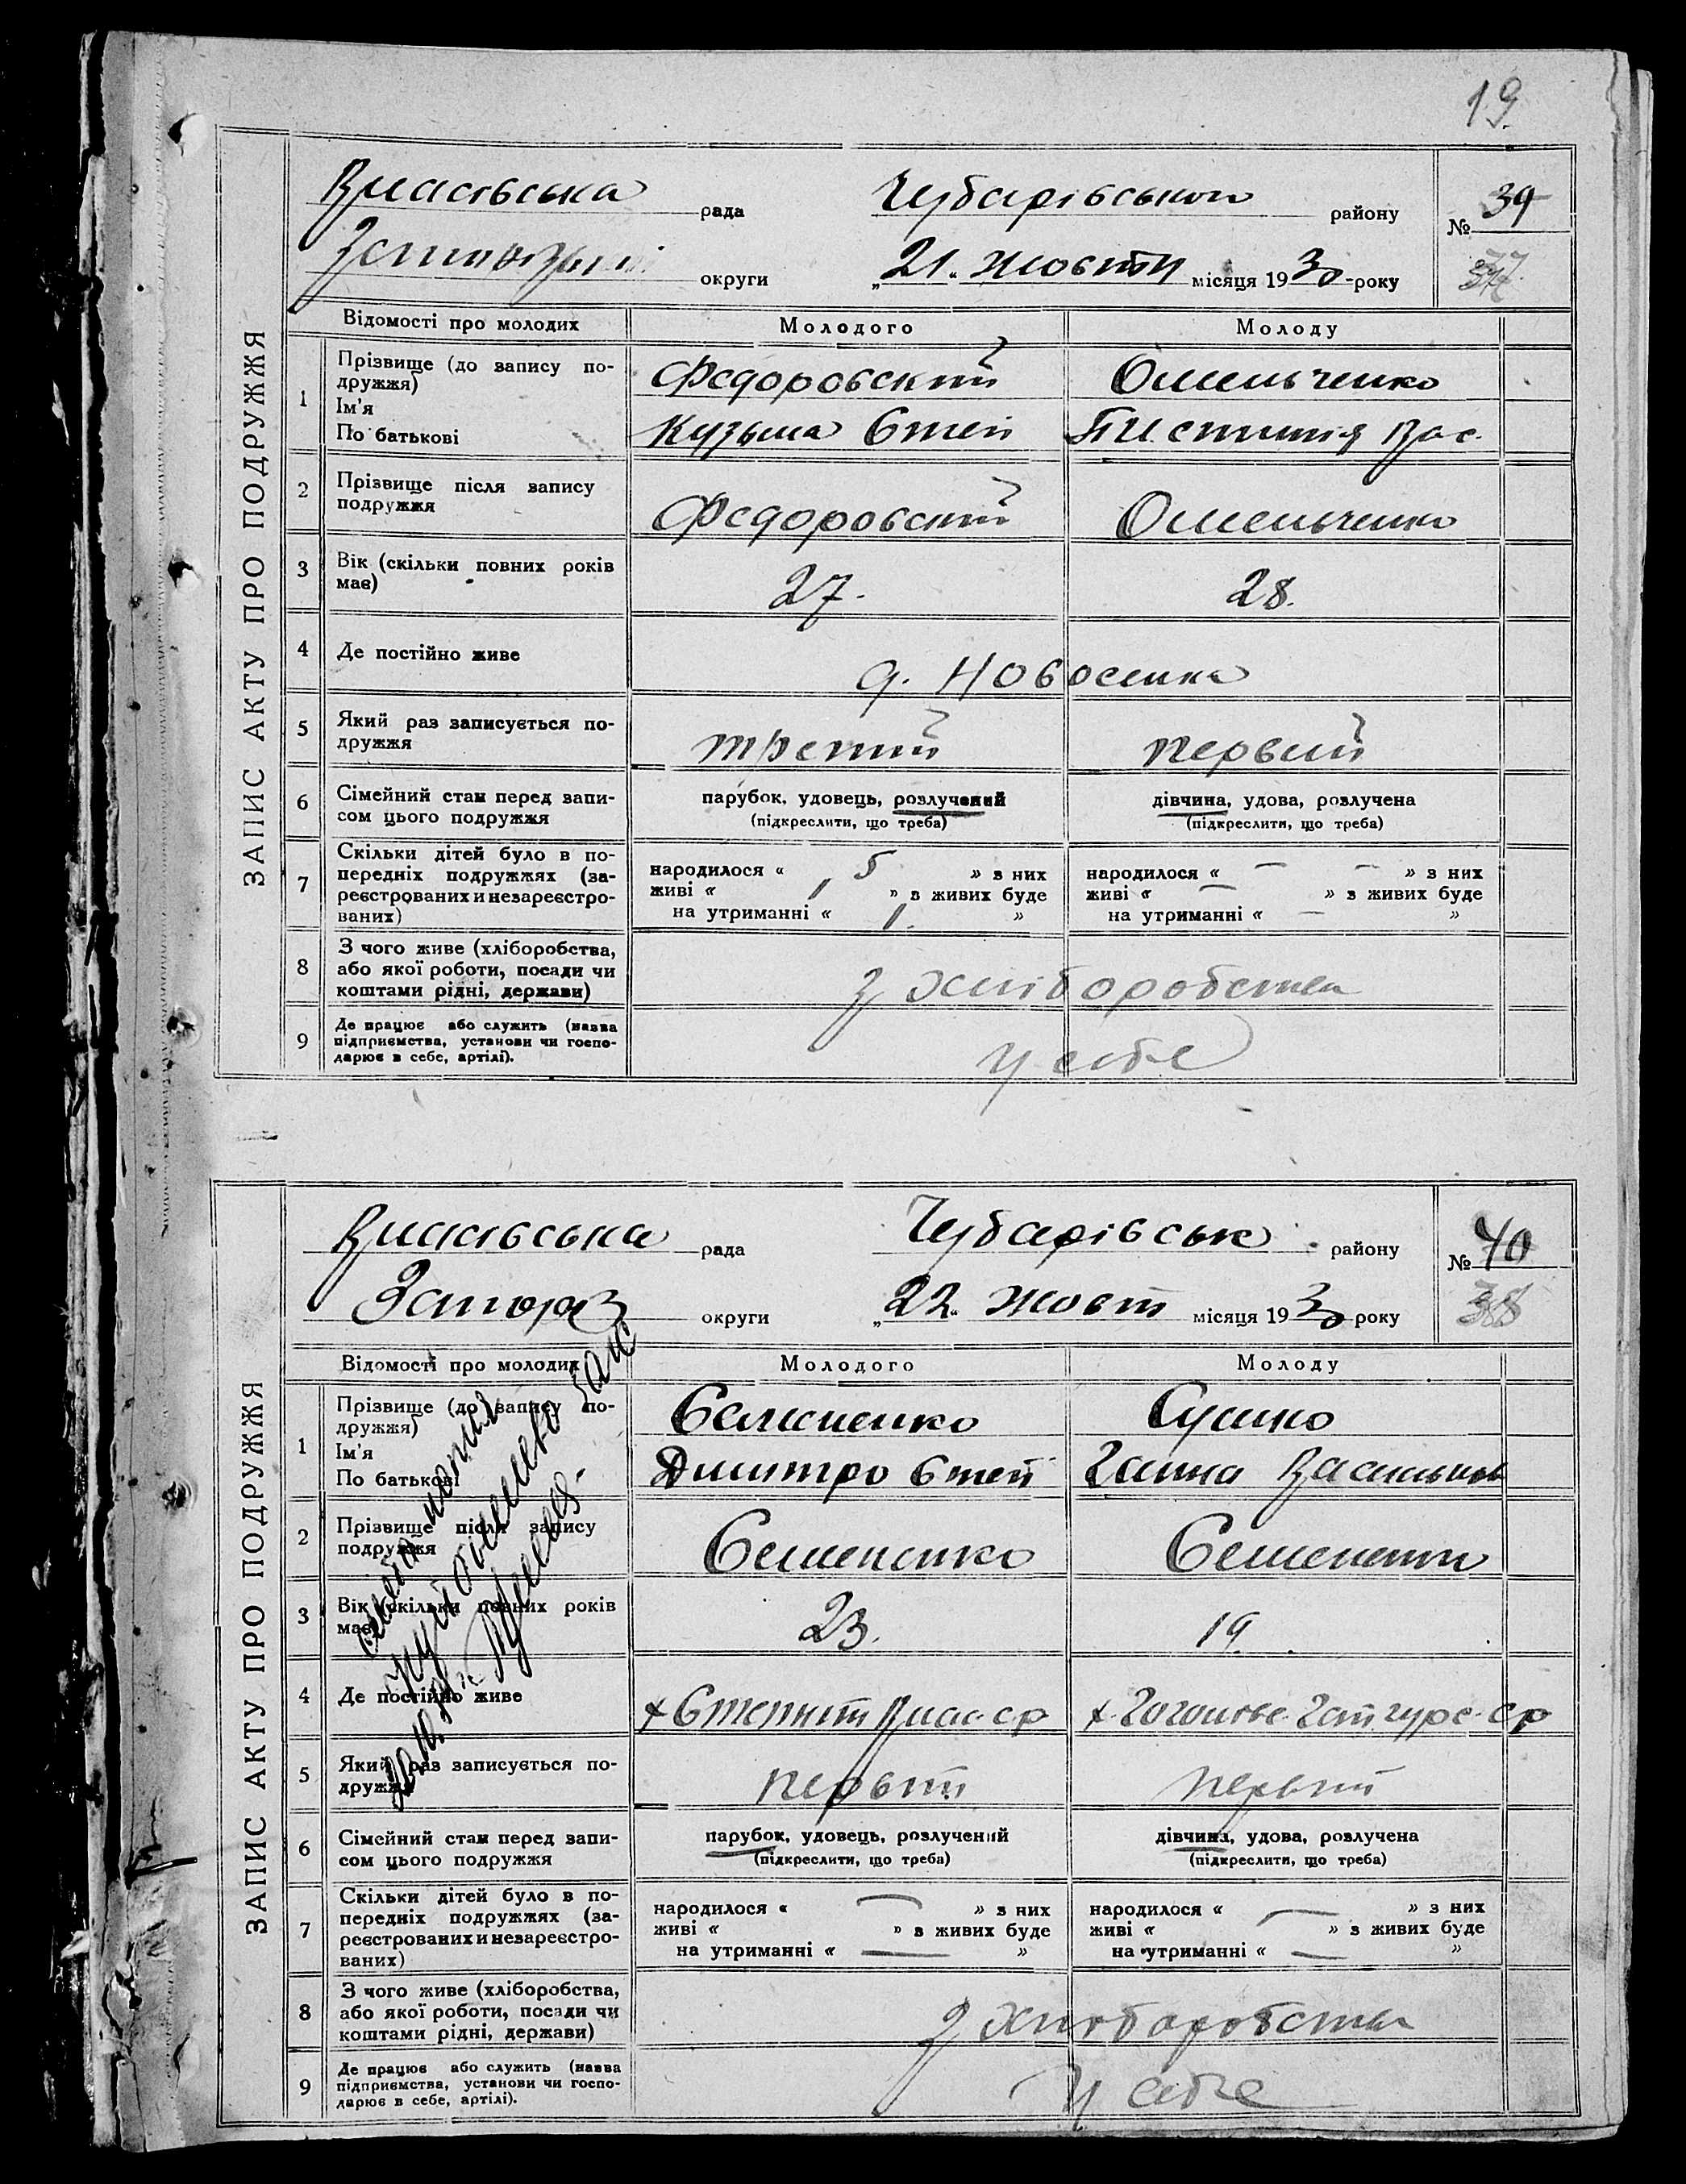 19.
ЗАПИС АКТУ ПРО ПОДРУЖЖЯ
Власівська рада Чубарівського району № 39
округи „21“ жовтн місяця 1930 року 37
Відомості про молодих Молодого Молоду
1 Прізвище (до запису по-
дружжя)
Ім'я
По батькові
Федоровский Омельченко
Кузьма Степ Устиния Вас.
2 Прізвище після запису
подружжя
Федоровский Омельченко
3 Вік (скільки повних років
має)
27. 28.
4 Де постійно живе
д. Новоселка
5 Який раз записується по-
дружжя
третий первый
6 Сімейний стан перед запи-
сом цього подружжя
парубок, удовець, розлучений дівчина, удова, розлучена
(підкреслити, що треба) (підкреслити, що треба)
7 Скільки дітей було в по-
передніх подружжях (за-
реєстрованих и незареєстро-
ваних)
народилося « 5 » з них народилося « — » з них
живі « 1 » в живих буде живі « — » з живих буде
на утриманні « 1. » на утриманні « — »
8 З чого живе (хліборобства,
або якої роботи, посади чи
коштами рідні, держави)
з хліборобства
9 Де працює або служить (назва
підприємства, установи чи госпо-
дарює в себе, артілі).
у себе
ЗАПИС АКТУ ПРО ПОДРУЖЖЯ
Власівська рада Чубарівськ району № 40
Запоріз округи „22“ жовт місяця 1930 року 38
Відомості про молодих Молодого Молоду
1 Прізвище (до запису по-
дружжя)
Ім'я
По батькові
Семененко
Дмитро Степ Ганна Васильев
2 Прізвище після запису
подружжя
Семененко Семененко
3 Вік (скільки повних років
має)
23. 19.
4 Де постійно живе
5 Який раз записується по-
дружжя
первый первый
6 Сімейний стан перед запи-
сом цього подружжя
парубок, удовець, розлучений дівчина, удова, розлучена
(підкреслити, що треба) (підкреслити, що треба)
7 Скільки дітей було в по-
передніх подружжях (за-
реєстрованих и незареєстро-
ваних)
народилося « — » з них народилося « — » з них
живі « » в живих буде живі « » з живих буде
на утриманні « — » на утриманні « — »
8 З чого живе (хліборобства,
або якої роботи, посади чи
коштами рідні, держави)
з хліборобства
9 Де працює або служить (назва
підприємства, установи чи госпо-
дарює в себе, артілі).
у себе